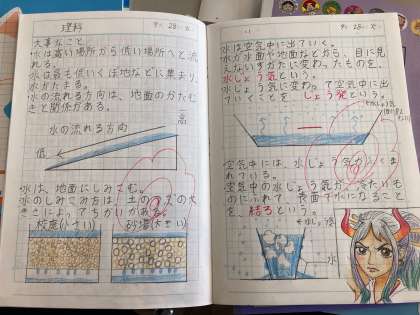 理科
大事なこと
水は高い場所から低い場所へと流
れる。
水は最も低いくぼ地などに集まり、
水がたまる。
水の流れる方向は、地面のかたむ
きと関係がある。
水の流れる方向
高
低
水は、地面にしみこむ。
水のしみこみ方は、土のつぶの大
きさによってちがいがある。
校庭(小さい)
砂場(大きい)
水は空気中に出ていく。
水が水面や地面などから、目に見
えないすがたに変わったものを、
水じょう気という。
水じょう気に変わって空気中に出
ていくことを じょう発という。
空気中には、水じょう気がふくま
れている。
空気中の水じょう気が冷たいもの
にふれて、表面で水になること
を、結ろという。
水